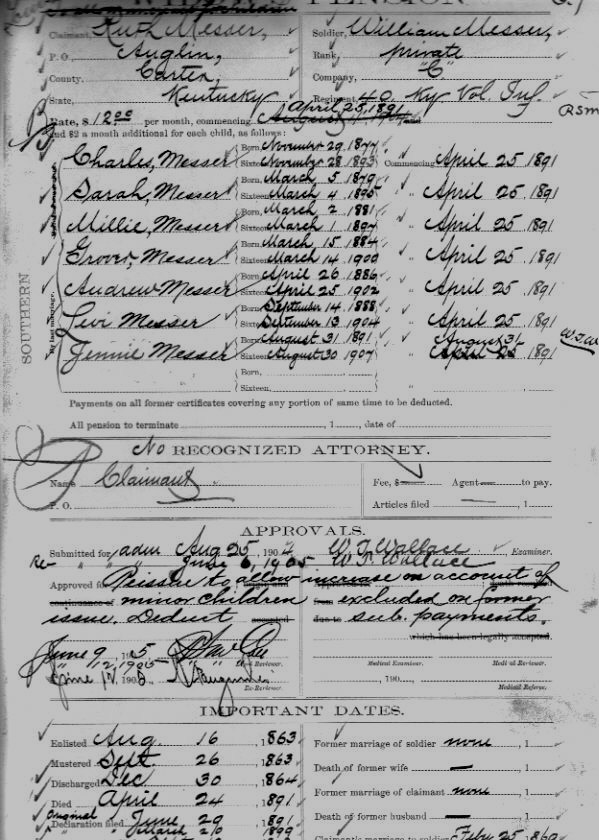 Claimant, Ruth Messer,
Soldier, William Messer,
P. O., Anglin,
Rank, private
County, Carter,
Company, "C"
State, Kentucky
Regiment 40, Ky Vol. Inf.
April 25, 1891
Rate, $ 12.00 per month, commencing
and $2 a month additional for each child, as follows:
Charles, Messer Born, November 29, 1877
Sixteen, November 28, 1893 Commencing April 25, 1891
Sarah, Messer Born, March 5, 1879
Sixteen, March 4, 1895 " April 25, 1891
Millie, Messer Born, March 2, 1881
Sixteen, March 1, 1897 " April 25, 1891
Grover, Messer Born, March 15, 1884
Sixteen, March 14, 1900 " April 25, 1891
Andrew Messer Born, April 26, 1886
Sixteen, April 25, 1902 " April 25, 1891
Levi Messer Born, September 14, 1888
Sixteen, September 13, 1904 " April 25, 1891
Jennie Messer Born, August 31, 1891
August 31
Sixteen, August 30, 1907 " April 25, 1891
Born,
Sixteen,
SOUTHERN
Payments on all former certificates covering any portion of same time to be deducted.
All pension to terminate , 1 , date of
No RECOGNIZED ATTORNEY.
Name Claimant
Fee, $ Agent to pay.
P. O.
Articles filed , 1
APPROVALS.
Submitted for adm Aug 25, 190 W. T. Wallace, Examiner.
Re- " " June 6, 1905 W. T. Wallace
Approved for Reissue to allow increase on account of
minor children excluded on former
issue. Deduct sub. payments.
which has been legally accepted.
June 9, 1905
" 12, 1905 Reviewer.
Medical Examiner. Medical Reviewer.
June
Re-Reviewer.
, 190
Medical Referee.
IMPORTANT DATES.
Enlisted Aug. 16, 1863
Former marriage of soldier none, 1
Mustered Sept. 26, 1863
Death of former wife —, 1
Discharged Dec 30, 1864
Former marriage of claimant none, 1
Died April 24, 1891
Death of former husband —, 1
Original
Declaration filed June 29, 1891
Claimant's marriage to soldier Feby 25, 1869